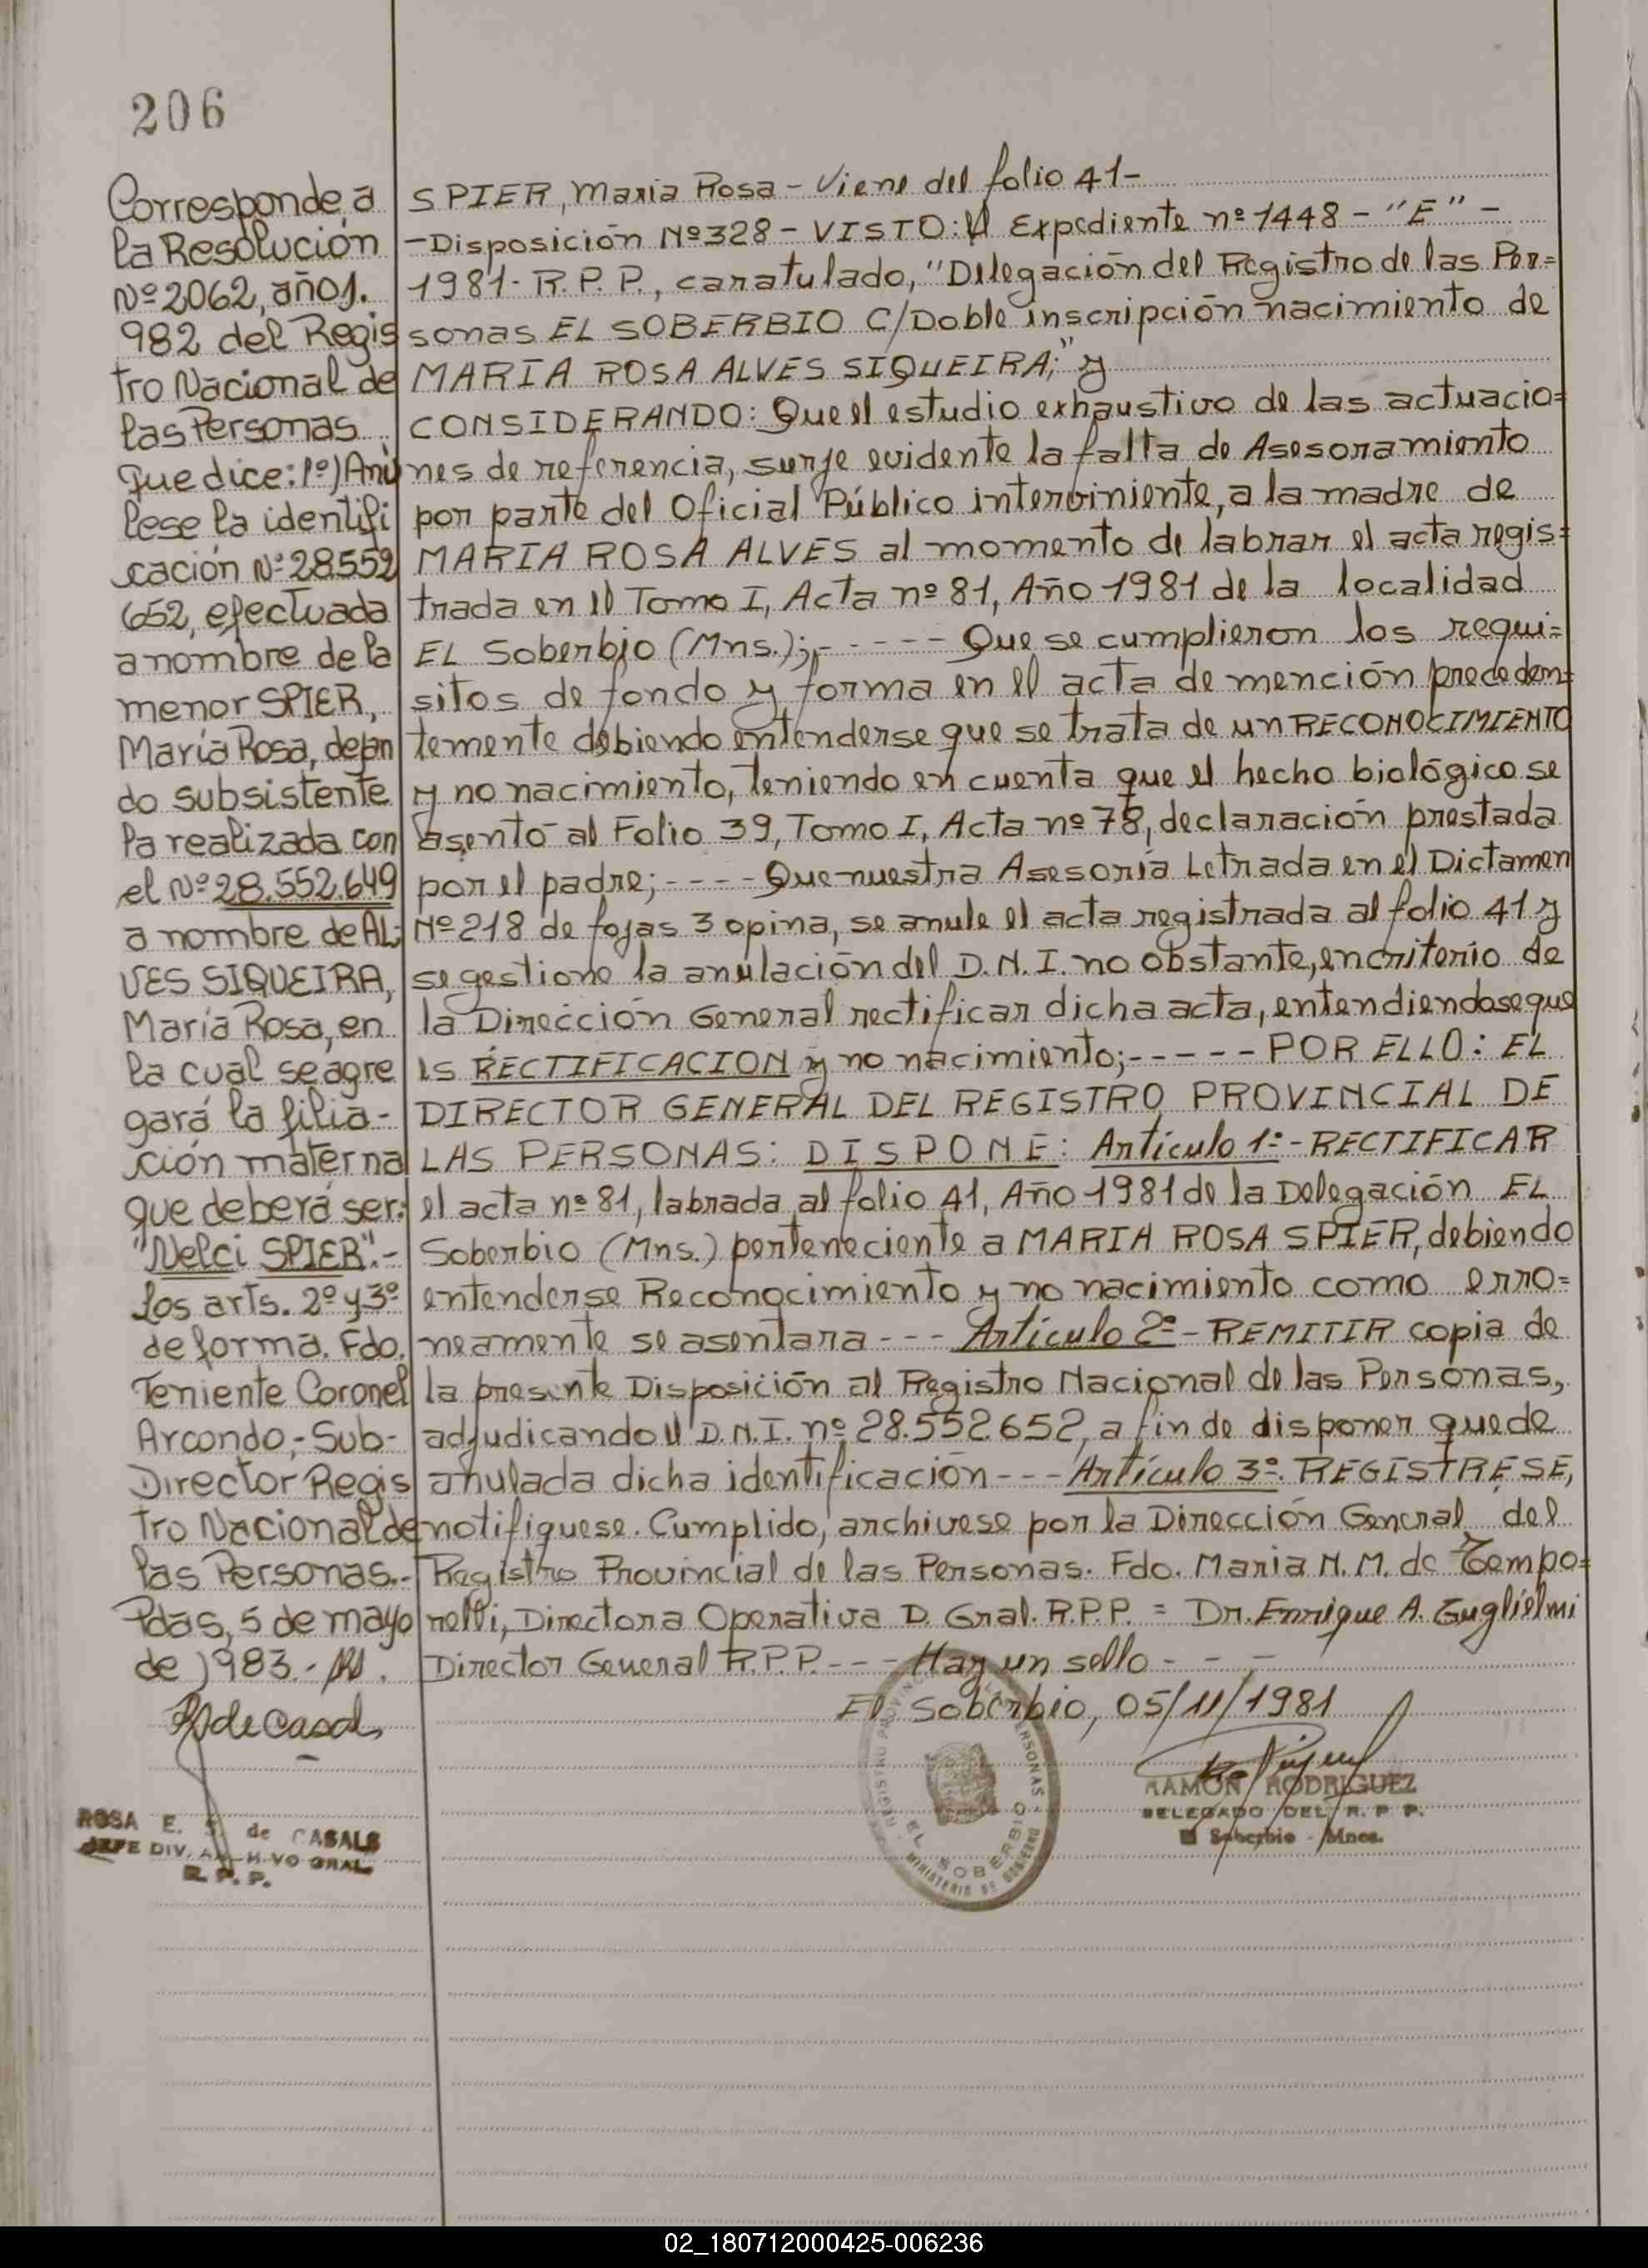 206
Corresponde a
la Resolución
Nº 2062, año 1.
982 del Regis
tro Nacional de
las Personas
que dice: 1º) Anú
lese la identifi
cación Nº 28552
652, efectuada
a nombre de la
menor SPIER,
María Rosa, dejan
do subsistente
la realizada con
el Nº 28.552.649
a nombre de AL-
VES SIQUEIRA,
María Rosa, en
la cual se agre
gará la filia-
ción materna
que deberá ser:
"Nelci SPIER".-
Los arts. 2º y 3º
de forma. Fdo.
Teniente Coronel
Arcondo,- Sub-
Director Regis
tro Nacional de
las Personas.-
Pdas, 5 de mayo
de 1983.-
ROSA E. S. de CASALS
JEFE DIV. ARCHIVO GRAL.
R. P. P.
SPIER, Maria Rosa - Viene del folio 41-
-Disposición Nº 328 - VISTO: El Expediente nº 1448 - "E" -
1981- R.P.P., caratulado, "Delegación del Registro de las Per=
sonas EL SOBERBIO C/Doble inscripción nacimiento de
MARIA ROSA ALVES SIQUEIRA;" y
CONSIDERANDO: Que el estudio exhaustivo de las actuacio=
nes de referencia, surje evidente la falta de Asesoramiento
por parte del Oficial Público interviniente, a la madre de
MARIA ROSA ALVES al momento de labrar el acta regis=
trada en el Tomo I, Acta nº 81, Año 1981 de la localidad
EL Soberbio (Mns.);- - - - - Que se cumplieron los requi=
sitos de fondo y forma en el acta de mención preceden=
temente debiendo entenderse que se trata de un RECONOCIMIENTO
y no nacimiento, teniendo en cuenta que el hecho biológico se
asentó al Folio 39, Tomo I, Acta nº 78, declaración prestada
por el padre; - - - - Que nuestra Asesoría Letrada en el Dictamen
Nº 218 de fojas 3 opina, se anule el acta registrada al folio 41 y
se gestione la anulación del D.N.I. no obstante, en criterio de
la Dirección General rectificar dicha acta, entendiendose que
es RECTIFICACION y no nacimiento;- - - - - POR ELLO: EL
DIRECTOR GENERAL DEL REGISTRO PROVINCIAL DE
LAS PERSONAS: DISPONE: Artículo 1º- RECTIFICAR
el acta nº 81, labrada al folio 41, Año 1981 de la Delegación EL
Soberbio (Mns.) perteneciente a MARIA ROSA SPIER, debiendo
entenderse Reconocimiento y no nacimiento como erro=
neamente se asentara - - - Artículo 2º - REMITIR copia de
la presente Disposición al Registro Nacional de las Personas,
adjudicando el D.N.I. nº 28.552.652, a fin de disponer quede
anulada dicha identificación - - - Artículo 3º. REGISTRESE,
notifiquese. Cumplido, archivese por la Dirección General del
Registro Provincial de las Personas. Fdo. Maria N. M. de Tempo=
nelli, Directora Operativa D. Gral. R.P.P. = Dr. Enrique A. Guglielmi
Director General R.P.P. - - - Hay un sello - - -
El Soberbio, 05/11/1981
REGISTRO PROVINCIAL DE LAS PERSONAS
EL SOBERBIO
MINISTERIO DE GOBIERNO
RAMON RODRIGUEZ
DELEGADO DEL R. P. P.
El Soberbio - Mnes.
02_180712000425-006236